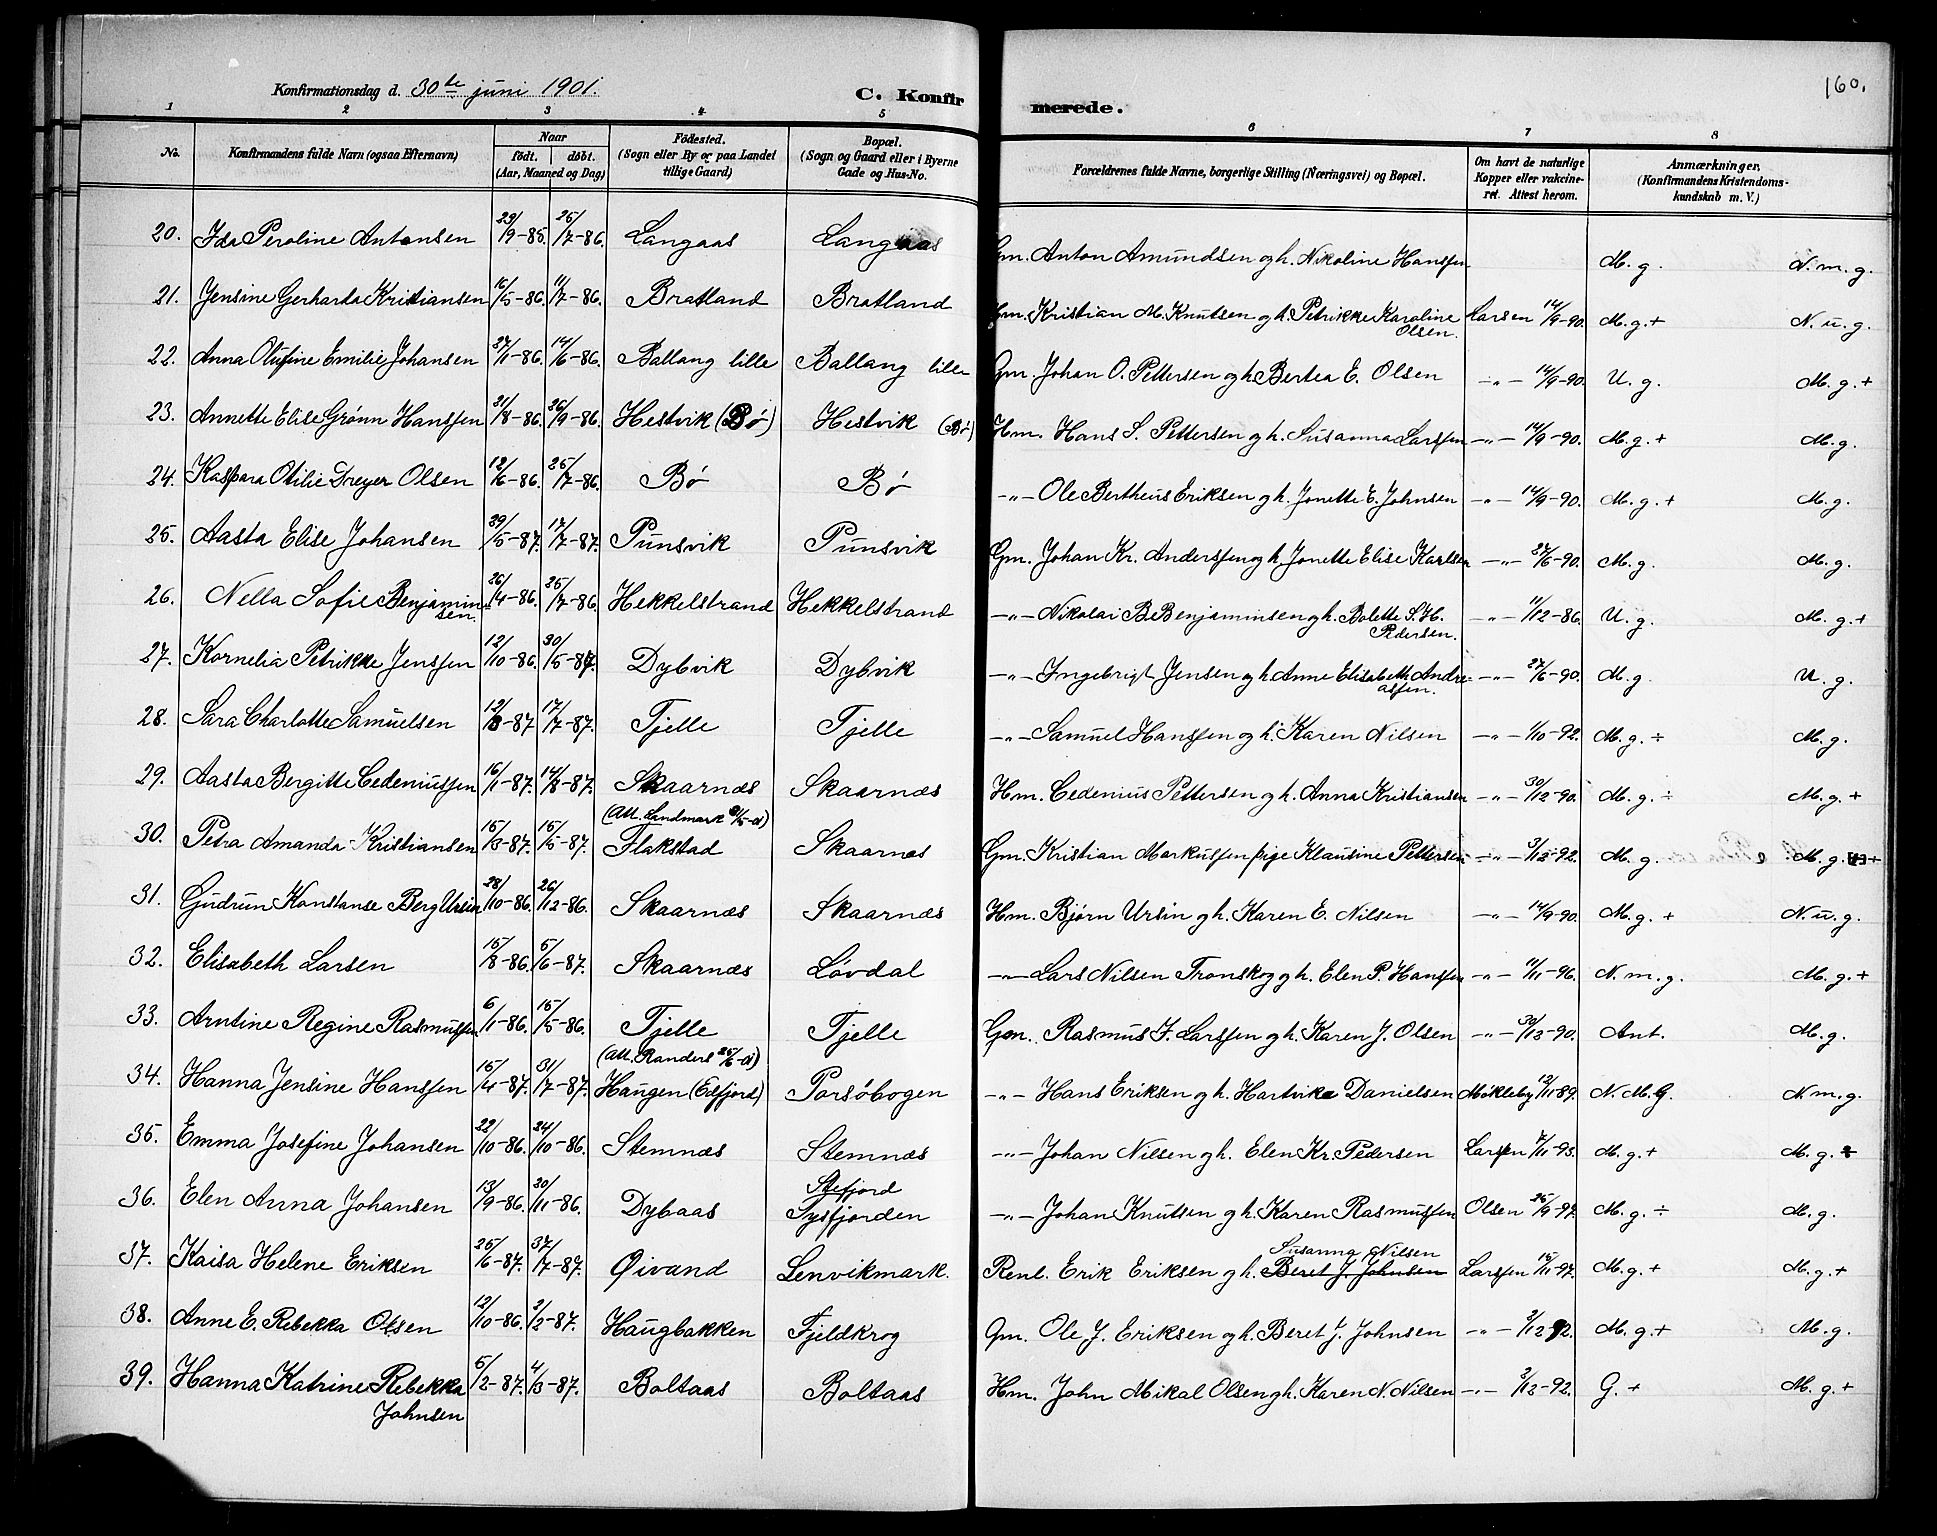 Konfirmationsdag d. 30te juni 1901.
C. Konfirmerede.
160.
1 2 3 4 5 6 7 8
No. Konfirmandens fulde Navn (ogsaa Efternavn) Naar født. døbt. (Aar, Maaned og Dag) Födested. (Sogn eller By or paa Landet tillige Gaard) Bopæl. (Sogn og Gaard eller i Byerne Gade og Hus-No. Forældrenes fulde Navne, borgerlige Stilling (Næringsvei) og Bopæl. Om havt de naturlige Kopper eller vakcineret. Attest herom. Anmærkninger, (Konfirmandens Kristendomskundskab m. V.)
20. Ida Peroline Antonsen 29/9-85. 25/7-86. Langaas Langaas Gm. Anton Amundsen og h. Nikoline Hanssen M. g. N. m. g.
21. Jensine Gerharda Kristiansen 16/5-86. 11/7-86. Bratland Bratland Hm. Kristian M. Knutsen og h. Petrikke Karoline Olsen. Larsen 14/9-90. M. g. + N. u. g.
22. Anna Olufine Emilie Johansen 27/1-86. 14/6-86. Ballang lille Ballang lille Gm. Johan O. Pettersen og h. Bertea E. Olsen -"- 14/9-90. U. g. M. g. +
23. Annette Elise Grønn Hanssen 21/8-86. 26/9-86. Hestvik (Bø) Hestvik (Bø) Hm. Hans S. Pettersen og h. Susanna Larssen -"- 14/9-90. M. g. + M. g.
24. Kaspara Otilie Dreyer Olsen 12/6-86. 25/7-86. Bø Bø -"- Ole Bertheus Eriksen og h. Jonette E. Johnsen -"- 14/9-90. M. g. + M. g.
25. Aasta Elise Johansen 29/5-87. 17/7-87. Punsvik Punsvik Gm. Johan Kr. Anderssen og h. Jonette Elise Karlsen -"- 27/6-90. M. g. M. g.
26. Nella Sofie Benjaminsen. 26/4-86. 25/7-86. Hekkelstrand Hekkelstrand -"- Nikolai B. Benjaminsen og h. Bolette S. H. Pedersen. -"- 11/12-86. U. g. M. g. +
27. Kornelia Petrikke Jenssen 12/10-86. 30/5-87. Dybvik Dybvik -"- Ingebrigt Jensen og h. Anne Elisabeth Andreassen. -"- 27/6-90. M. g. U. g.
28. Sara Charlotte Samuelsen 12/3-87 17/7-87. Tjelle Tjelle -"- Samuel Hanssen og h. Karen Nilsen -"- 1/10-92. M. g. ÷ M. g.
29. Aasta Bergitte Cedeniussen 16/1-87. 14/8-87. Skaarnæs Skaarnæs Hm. Cedenius Pettersen og h. Anna Kristiansen -"- 30/12-90. M. g. ÷ M. g. +
30. Petra Amanda Kristiansen 15/3-87. 15/5-87. (Att. Landmark /5-01) Flakstad Skaarnæs Gm. Kristian Markussen pige Klausine Pettersen -"- 3/12-92. M. g. M. g. +
31. Gudrun Konstanse Berg Ursin 28/10-86. 26/12-86. Skaarnæs Skaarnæs Hm. Bjørn Ursin og h. Karen E. Nilsen -"- 14/9-90. M. g. + N. u. g.
32. Elisabeth Larsen 15/8-86. 5/6-87. Skaarnæs Løvdal -"- Lars Nilsen Tronskog h. Elen P. Hanssen -"- 11/11-96. N. m. g. M. g. +
33. Arntine Regine Rasmussen 6/1-86. 15/5-86. Tjelle Tjelle Gm. Rasmus J. Larssen og h. Karen J. Olsen -"- 30/12-90. Ant. M. g.
34. Hanna Jensine Hanssen 15/4-87. 31/7-87. (Att. Randers 25/6-01) Haugen (Eidfjord) Porsøbogen -"- Hans Eriksen og h. Hartvike Danielsen Mikleby 12/11-89. N. M. G. N. m. g.
35. Emma Josefine Johansen 22/10-86. 24/10-86. Stemnæs Stemnæs -"- Johan Nilsen og h. Elen Kr. Pedersen Larssen 7/11-93. M. g. + M. g.
36. Elen Anna Johansen 13/9-86. 30/11-86. Dybaas Stefjord Tysfjorden -"- Johan Knutsen og h. Karen Rasmussen Olsen 25/9-97. M. g. ÷ M. g.
37. Kaisa Helene Eriksen 25/6-87. /7-87. Øivand Lenvikmark. Renl. Erik Eriksen og h. Susanna Nilsen Beret J. Johnsen Larssen 15/11-97. M. g. + M. g. +
38. Anne E. Rebekka Olsen 12/10-86. 2/2-87. Haugbakken Fjeldkrog Gm. Ole J. Eriksen og h. Beret J. Johnsen -"- 3/12 92. M. g. + M. g.
39. Hanna Katrine Rebekka Johnsen 5/2-87. 4/3-87. Boltaas Boltaas Hm. John Mikal Olsen og h. Karen N. Nilsen -"- 3/12-92. G. + M. g. +